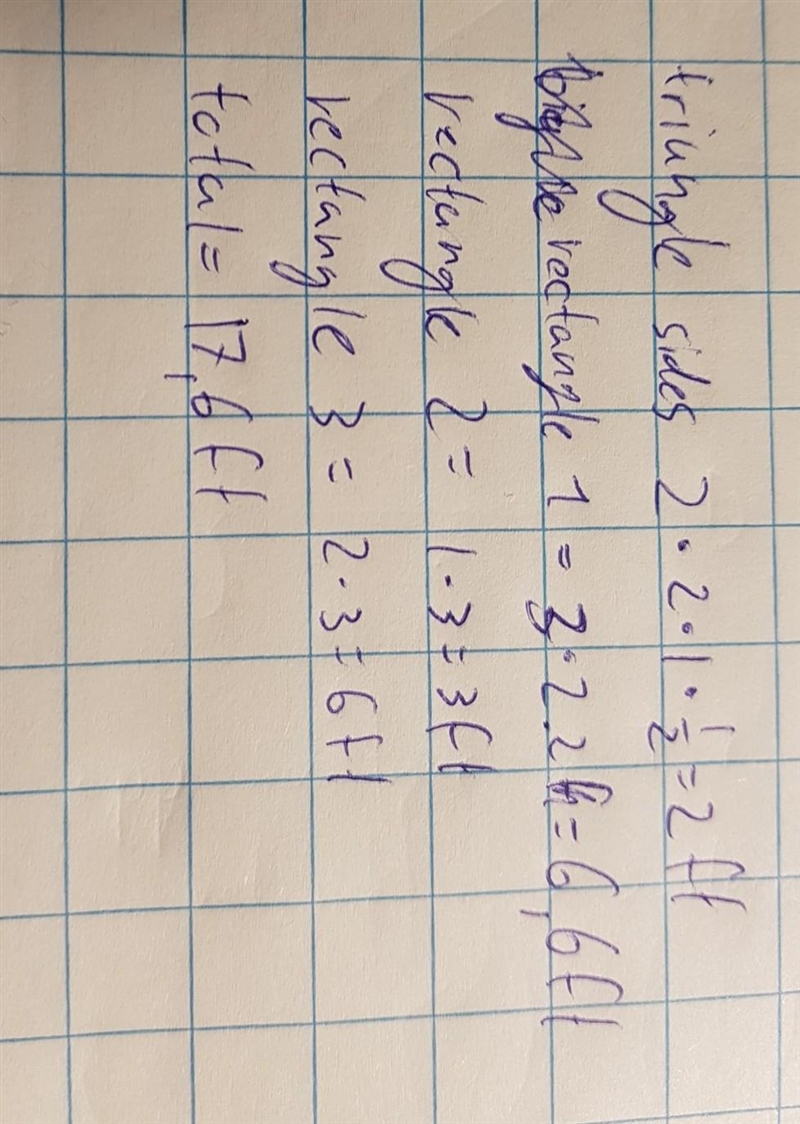 triangle sides 2·2·1·1/2=2 ft
rectangle 1 = 3·2.2=6,6ft
rectangle 2 = 1·3=3ft
rectangle 3 = 2·3=6ft
total= 17,6ft